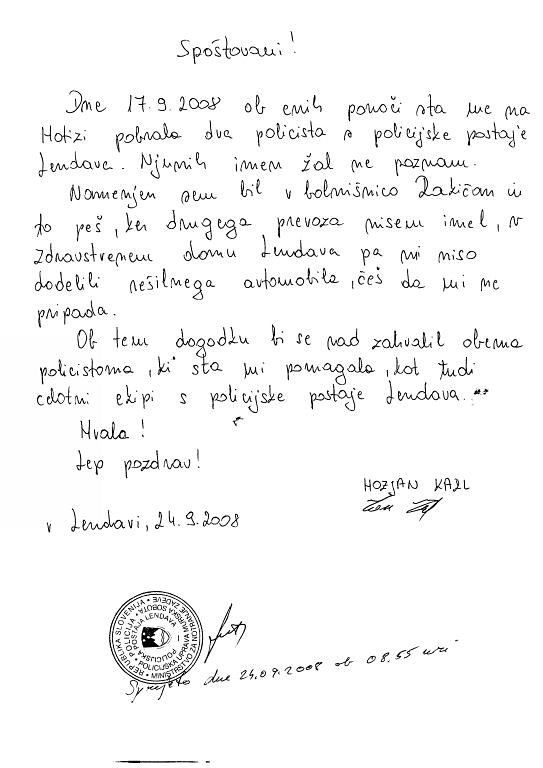 Spoštovani!
Dne 17.9.2008 ob enih ponoči sta me na
Hotizi pobrala dva policista s policijske postaje
Lendava. Njunih imen žal ne poznam.
Namenjen sem bil v bolnišnico Rakičan in
to peš, ker drugega prevoza nisem imel, v
Zdravstvenem domu Lendava pa mi niso
dodelili rešilnega avtomobila, češ da mi ne
pripada.
Ob tem dogodku bi se rad zahvalil obema
policistoma, ki sta mi pomagala, kot tudi
celotni ekipi s policijske postaje Lendava.
Hvala!
Lep pozdrav!
HOZJAN KARL
v Lendavi, 24.9.2008
REPUBLIKA SLOVENIJA • MINISTRSTVO ZA NOTRANJE ZADEVE
POLICIJA • POLICIJSKA UPRAVA MURSKA SOBOTA
POLICIJSKA POSTAJA LENDAVA
Sprejeto dne 24.09.2008 ob 08.55 uri